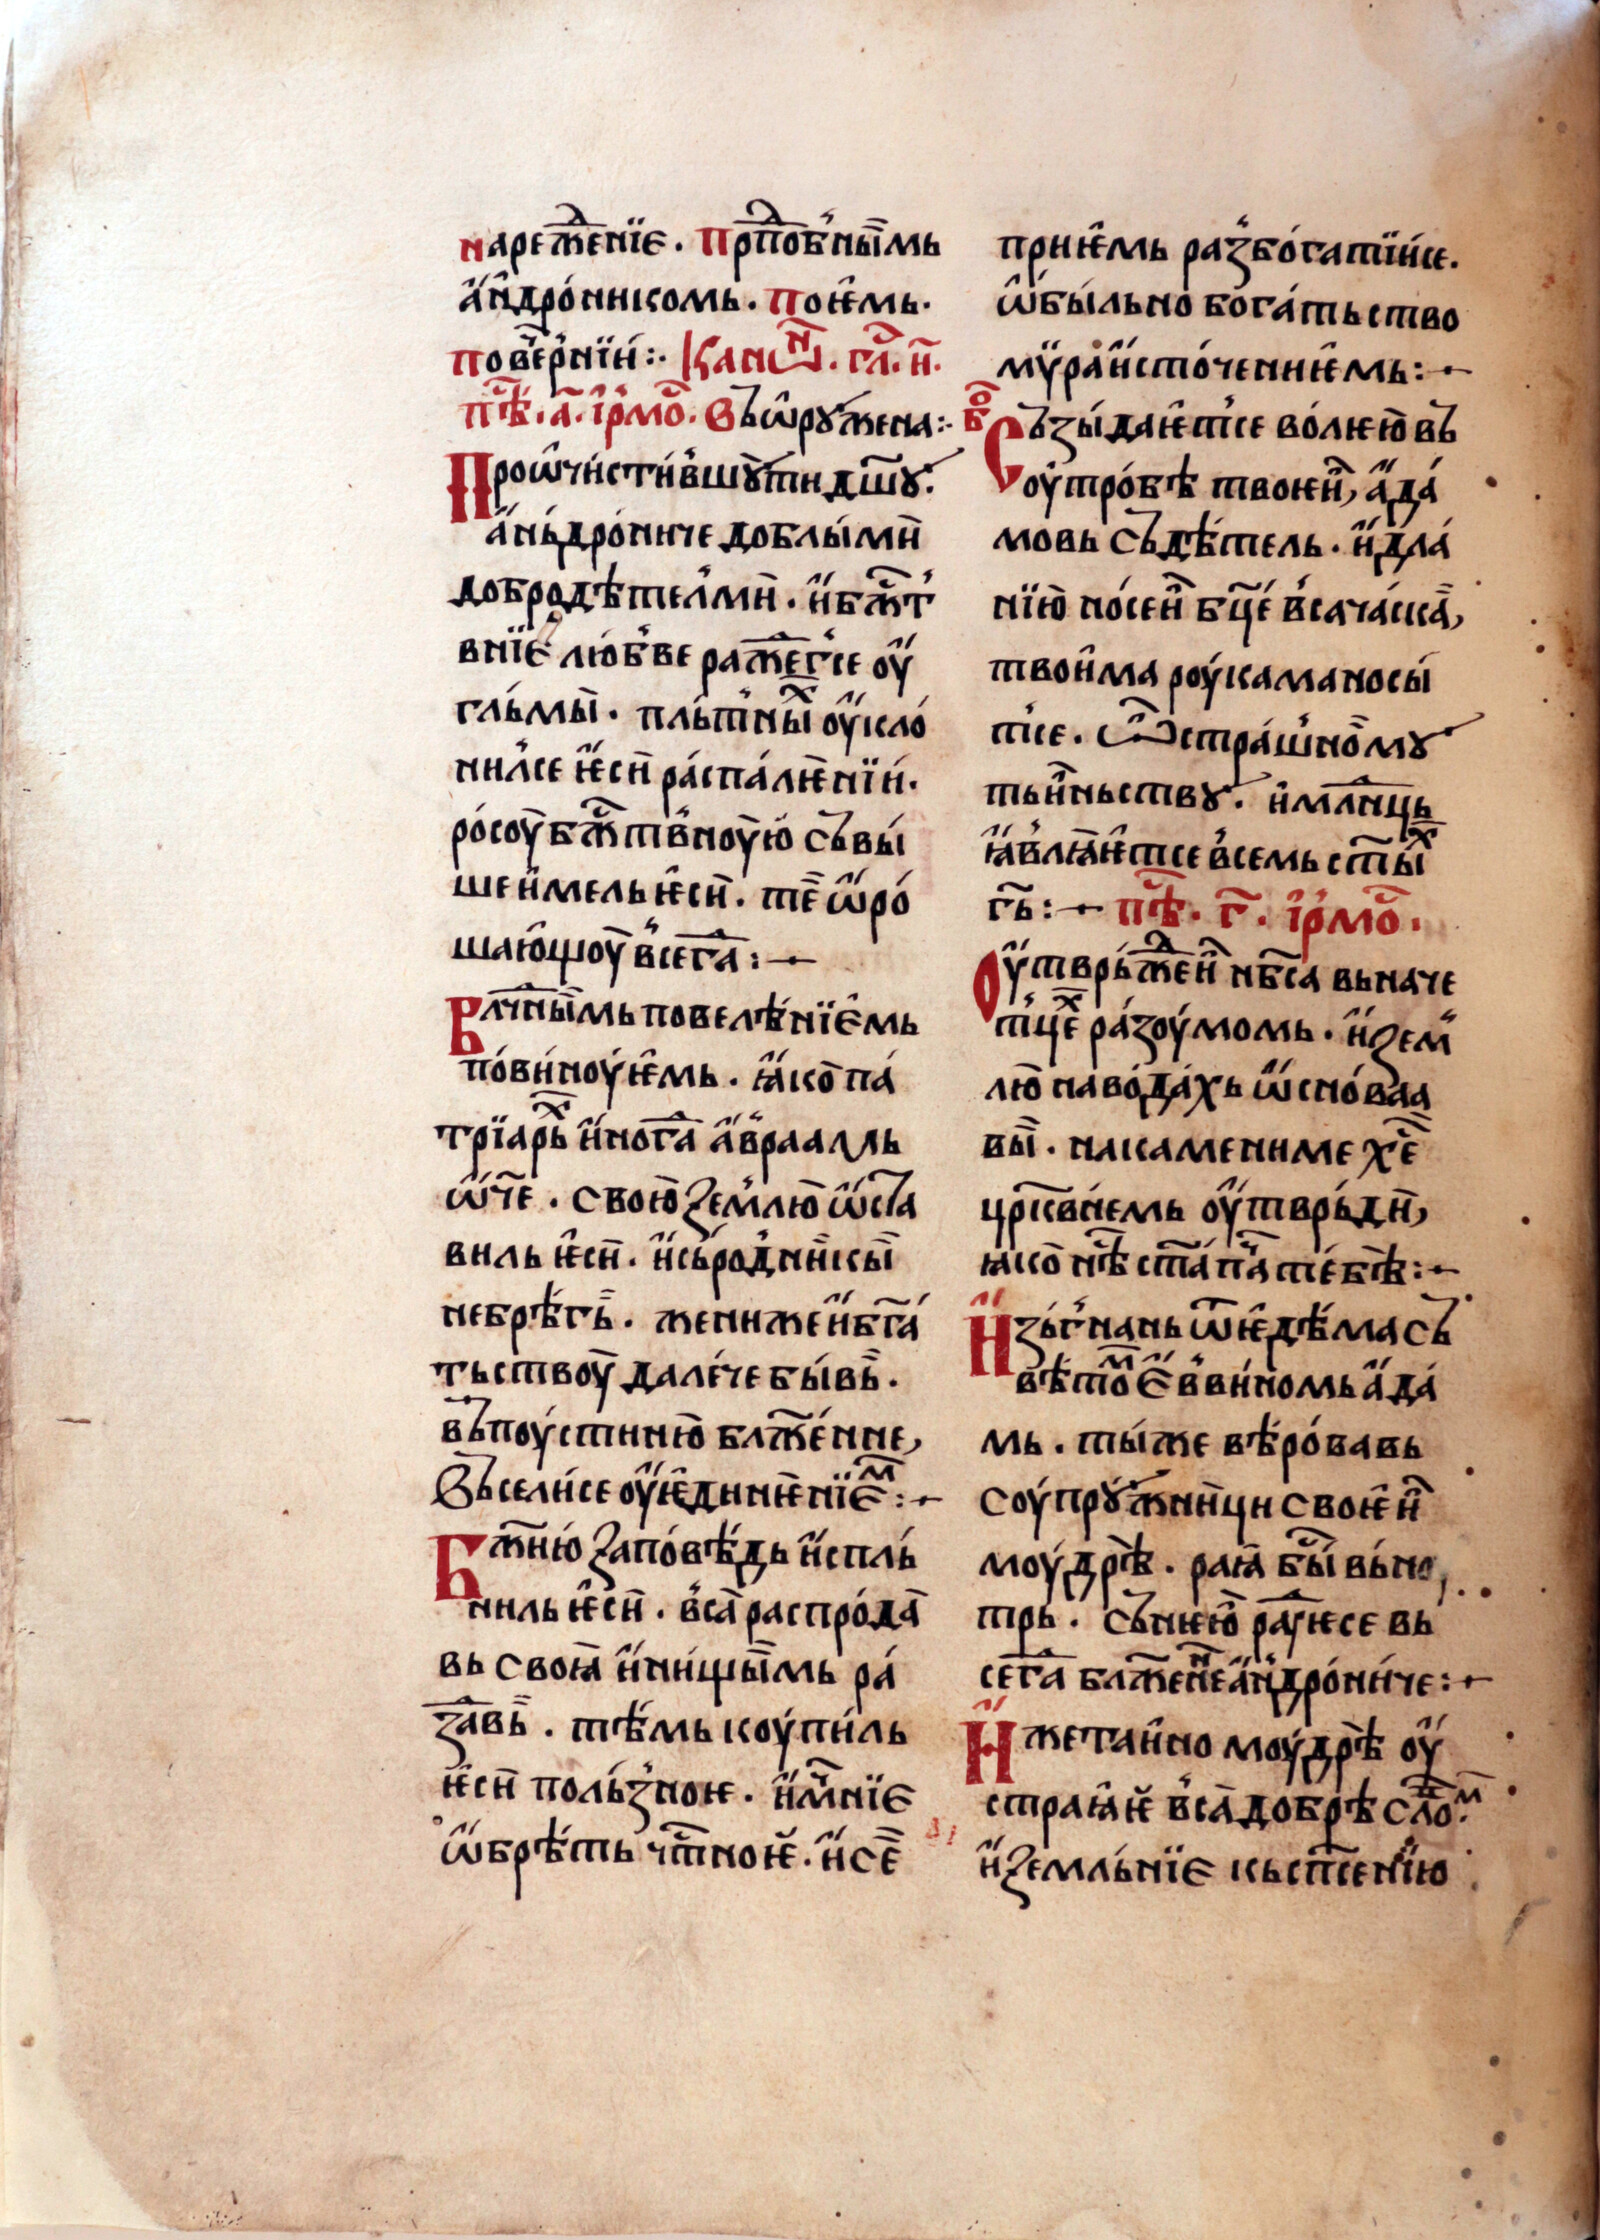 нареже́нїє. прпⷣо́бныⷨмь
а҆́ндро́нникомь. пое҆́мь.
пове҆́рнїи:. канѡⷩ҇. гл҃. и҃.
пѣ҃. а҃. і҆рмо҃. въѡ҆рꙋжена:.
Проѡ҆чи́сти́вшꙋ ти дш҃ꙋ.
а҆́ньдро́ниче доблы́мѝ
добродѣтелмѝ. и҆бж҃т
внїє лю́бве ражегсе оу҆
гльмы̀. пльтныⷯ оу҆кло́
нилсе ѥ҆сѝ распалѥ́нїи.
ро́соу̀ бж҃твноую́ съвы́
ше и҆мель ѥ҆сѝ. те҃ ѡ҆ро́
шаю҆щоу̀ всегⷣа:~
Влⷣчныⷨмь повелѣ́нїємь
пови́ноуѥ҆мь. ꙗ҆ко̀ па́
трїарⷯь и҆ногⷣа а҆́враамь
ѡ҆ч҃е. свою̀ землю̀ ѡ҆ста
виль ѥ҆сѝ. и҆сьродни̏скы̀
небрѣ́гь̀. жени же и҆бг҃а́
тьствоу̀ дале́че бы́вь̀.
въпоу́стиню̀ блаж҃е́нне,
Въсели́се оу҆ѥдинѥнїєⷨ:~
Бж҃ию́ запо́вѣ́дь и҆спль́
ниль ѥ҆сѝ. вса̀ распро́да̀
вь своꙗ̀ и҆ни́щыⷨмь ра́
зⷣавь̀. тѣ́мь коупи́ль
ѥ҆сѝ пользноѥ. и҆мⷨнїє
ѡ҆брѣ́ть чтⷭ҇ноѥ. и҆се҃
приѥ҆мь разбо́гатїи́се.
ѡ҆бы́льно бога́тьство
мѵ̈ра и҆сто́ченниѥ҆мь:~
бⷪ҇
Съзы́даѥ҆тсе во́лѥю̀ въ
оутро́бѣ твоѥѝ, а҆да́
мовь съдѣ́тель. и҆дла́
нїю̀ но́сеѝ бц҃е́ всача́скаꙗ̀,
твои҆ма роукама носы́
тсе. ѿстра́шно̀мꙋ
тьиньствꙋ. и҆млⷣнць
ꙗ҆влꙗѥ҆тсе всемь ст҃ы́ⷯ
гь̀:~ пѣ҃. г҃. і҆рмо҃.
Оутврьже́нѝ нб҃са вьначе
тцⷯе ра́зоу́момь. и҆зем
лю̀ наво́да́хь ѡ҆сно́ваа
вы̀. накамени ме х҃е
црⷭ҇кви́емь оу҆тврьди̏,
ꙗко̀ нⷭ҇ѣ ст҃а́ па҃ те́бѣ:~
И҆зьгнань ѿѥдѣ́ма съ
вѣтоⷨ є҆вви́номь а҆да́
мь. ты́же вѣ́ро́вавь
соупрꙋжни̏ци своѥѝ
моудрѣ̀. раꙗ̀ бы̀ вьноу
трь. съниею̀ раⷣꙋѥсе вь
сегⷣа блаж҃енⷩе а҆ндро́ни́че:~
И҆же таи҆но моу́дрѣ оу҆
страꙗ҆ѥ вса̀ добрѣ сло҃ⷨ.
и҆земльнїє кьсп҃сенїю